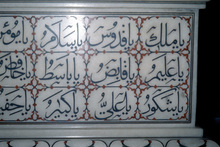 يا ملك يا قدوس يا سلام يا مؤمن
يا عليم يا قابض يا باسط يا خافض
يا شكور يا علي يا كبير يا حفيظ